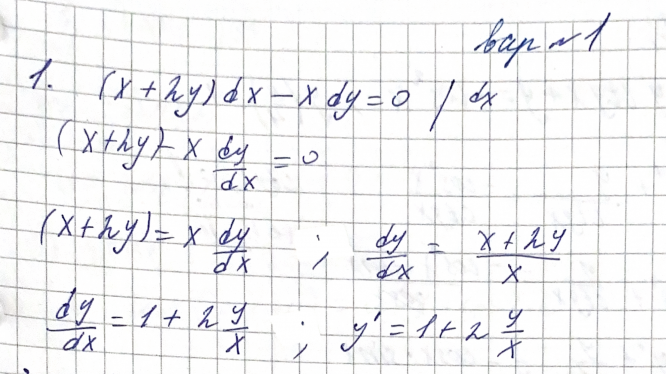 вар № 1
1. (x + 2y) dx − x dy = 0 / dx
(x + 2y) − x dy/dx = 0
(x + 2y) = x dy/dx ; dy/dx = (x + 2y)/x
dy/dx = 1 + 2 y/x ; y' = 1 + 2 y/x